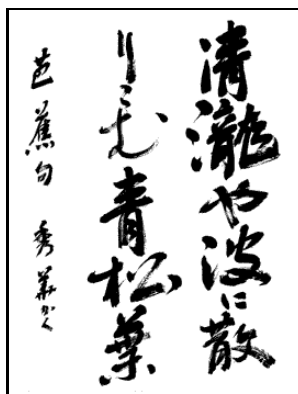 清瀧や波に散
りこむ青松葉
芭蕉句 秀華かく